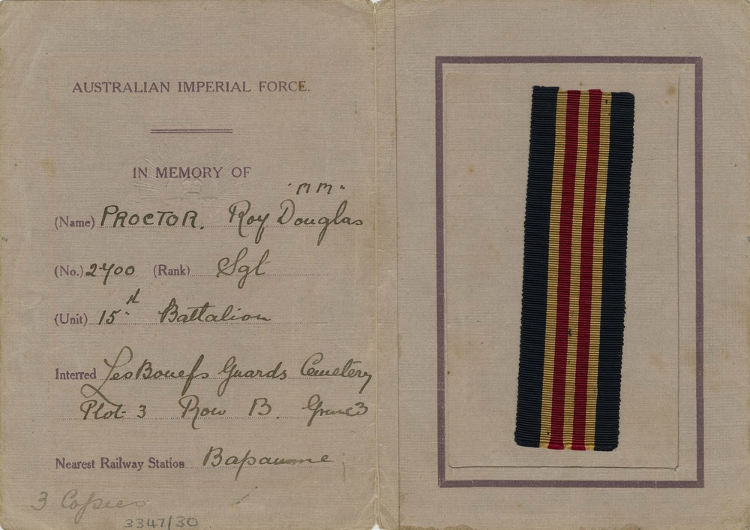 AUSTRALIAN IMPERIAL FORCE.
IN MEMORY OF
"MM"
(Name) PROCTOR. Roy Douglas
(No.) 2400 (Rank) Sgt
(Unit) 15th Battalion
Interred Les Bouefs Guards Cemetery
Plot 3 Row B. Grave 3
Nearest Railway Station Bapaume
3 Copies
3347/30